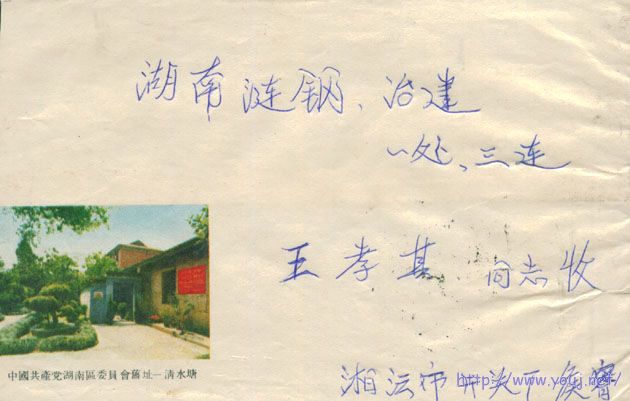 湖南涟钢、冶建
一处、三连
王孝其 同志收
中國共產党湖南區委員會舊址—清水塘
湘 市
http://www.youj.net/